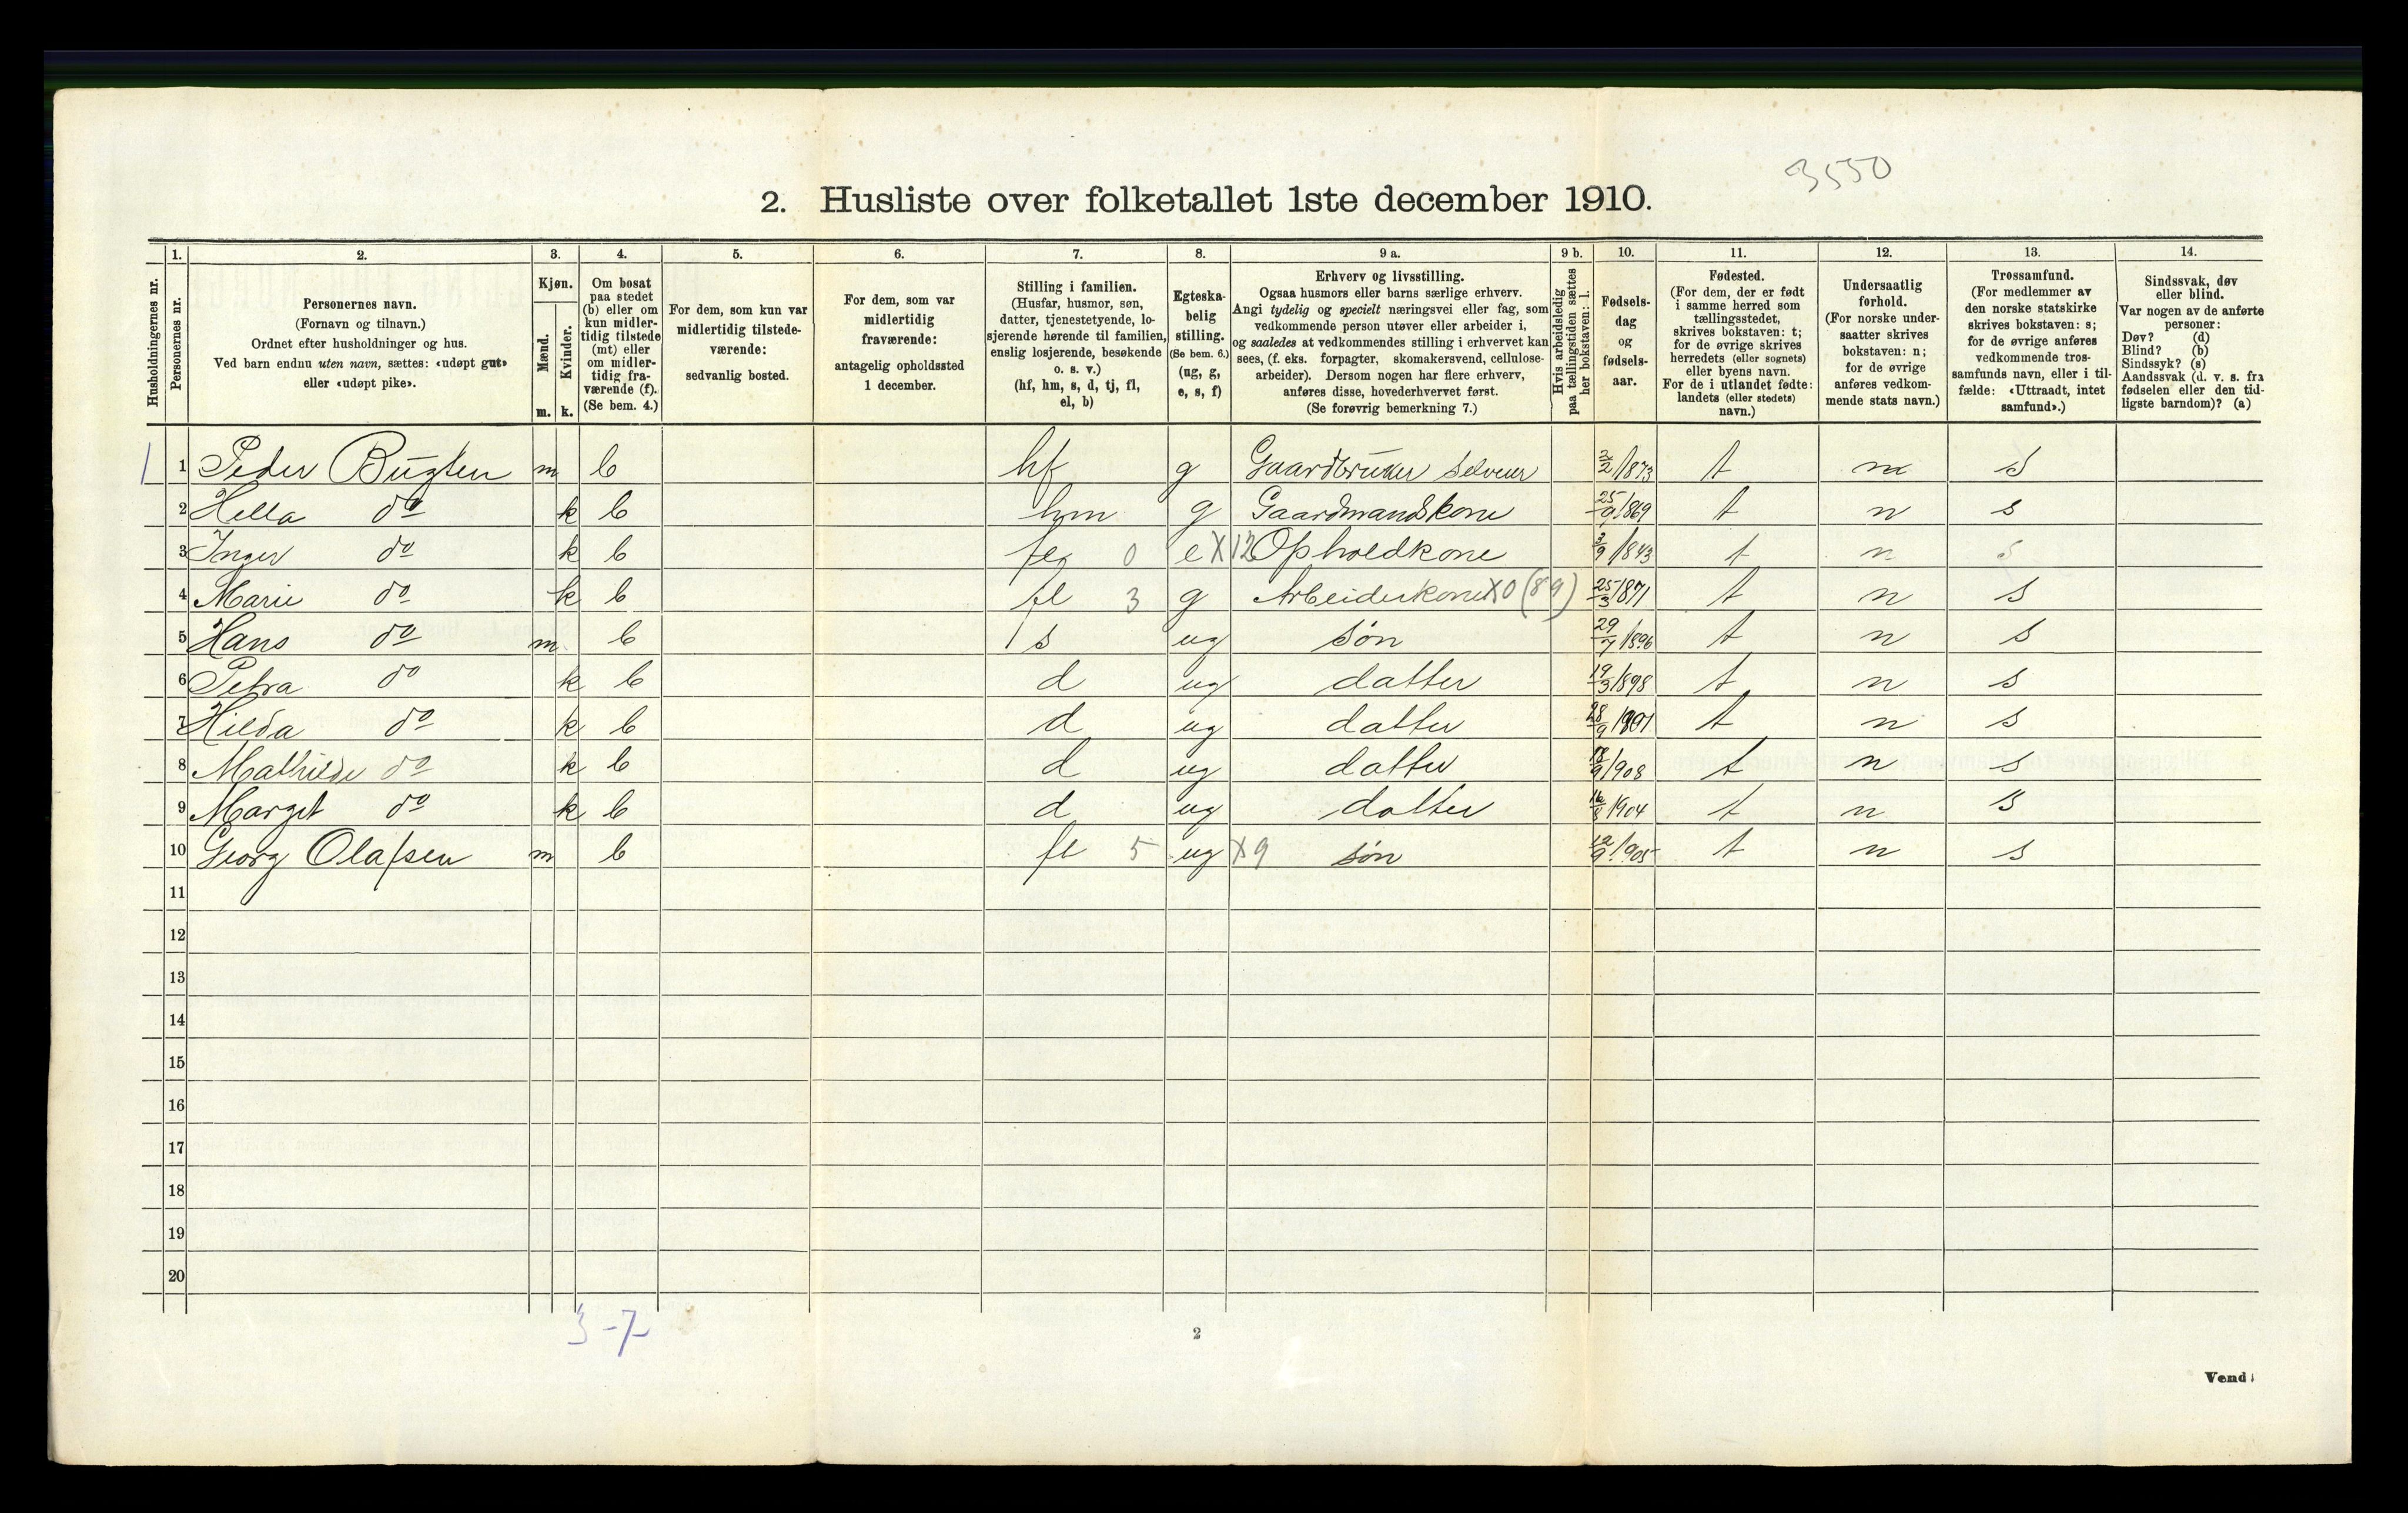 3550
2. Husliste over folketallet 1ste december 1910.
Husholdningernes nr.
1. Personernes nr.
2. Personernes navn.
(Fornavn og tilnavn.)
Ordnet efter husholdninger og hus.
Ved barn endnu uten navn, sættes: «udøpt gut»
eller «udøpt pike».
3. Kjøn.
Mænd. m.
Kvinder. k.
4. Om bosat
paa stedet
(b) eller om
kun midler-
tidig tilstede
(mt) eller
om midler-
tidig fra-
værende (f).
(Se bem. 4.)
5. For dem, som kun var
midlertidig tilstede-
værende:
sedvanlig bosted.
6. For dem, som var
midlertidig
fraværende:
antagelig opholdssted
1 december.
7. Stilling i familien.
(Husfar, husmor, søn,
datter, tjenestetyende, lo-
sjerende hørende til familien,
enslig losjerende, besøkende
o. s. v.)
(hf, hm, s, d, tj, fl,
el, b)
8. Egteska-
belig
stilling.
(Se bem. 6.)
(ug, g,
e, s, f)
9 a. Erhverv og livsstilling.
Ogsaa husmors eller barns særlige erhverv.
Angi tydelig og specielt næringsvei eller fag, som
vedkommende person utøver eller arbeider i,
og saaledes at vedkommendes stilling i erhvervet kan
sees, (f. eks. forpagter, skomakersvend, cellulose-
arbeider). Dersom nogen har flere erhverv,
anføres disse, hovederhvervet først.
(Se forøvrig bemerkning 7.)
9 b. Hvis arbeidsledig
paa tællingstiden sættes
her bokstaven: l.
10. Fødsels-
dag
og
fødsels-
aar.
11. Fødested.
(For dem, der er født
i samme herred som
tællingsstedet,
skrives bokstaven: t;
for de øvrige skrives
herredets (eller sognets)
eller byens navn.
For de i utlandet fødte:
landets (eller stedets)
navn.)
12. Undersaatlig
forhold.
(For norske under-
saatter skrives
bokstaven: n;
for de øvrige
anføres vedkom-
mende stats navn.)
13. Trossamfund.
(For medlemmer av
den norske statskirke
skrives bokstaven: s;
for de øvrige anføres
vedkommende tros-
samfunds navn, eller i til-
fælde: «Uttraadt, intet
samfund».)
14. Sindssvak, døv
eller blind.
Var nogen av de anførte
personer:
Døv? (d)
Blind? (b)
Sindssyk? (s)
Aandssvak (d. v. s. fra
fødselen eller den tid-
ligste barndom)? (a)
1 1 Peder Bugten m b hf g Gaardbruker selveier 2/2 1873 t n s
2 Hella do k b hm g Gaardmandskone 25/9 1869 t n s
3 Inger do k b fl 0 e X12 Opholdkone 3/9 1843 t n s
4 Marie do k b fl 3 g Arbeiderkone X0 (89) 25/3 1871 t n s
5 Hans do m b s ug søn 29/7 1896 t n s
6 Petra do k b d ug datter 19/3 1898 t n s
7 Hilda do k b d ug datter 28/9 1901 t n s
8 Mathilde do k b d ug datter 18/9 1908 t n s
9 Marget do k b d ug datter 16/8 1904 t n s
10 Georg Olafsen m b fl 5 ug X9 søn 12/9 1905 t n s
11
12
13
14
15
16
17
18
19
20
3-7
2
Vend!